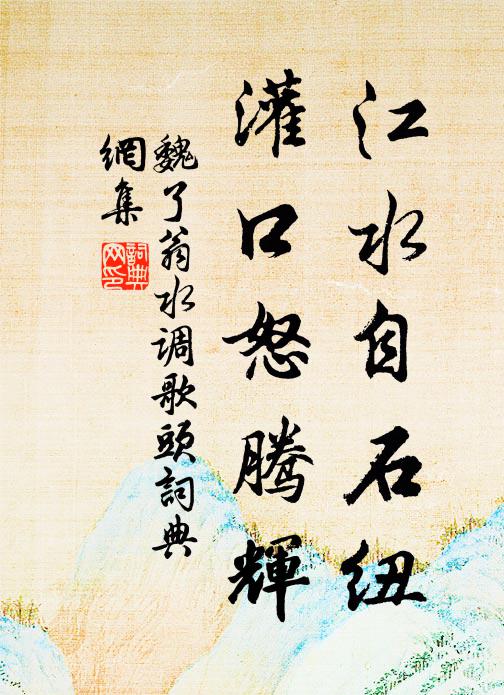 江水自石纽
灌口怒腾輝
魏了翁水调歌頭詞典
網集
詞典
网印